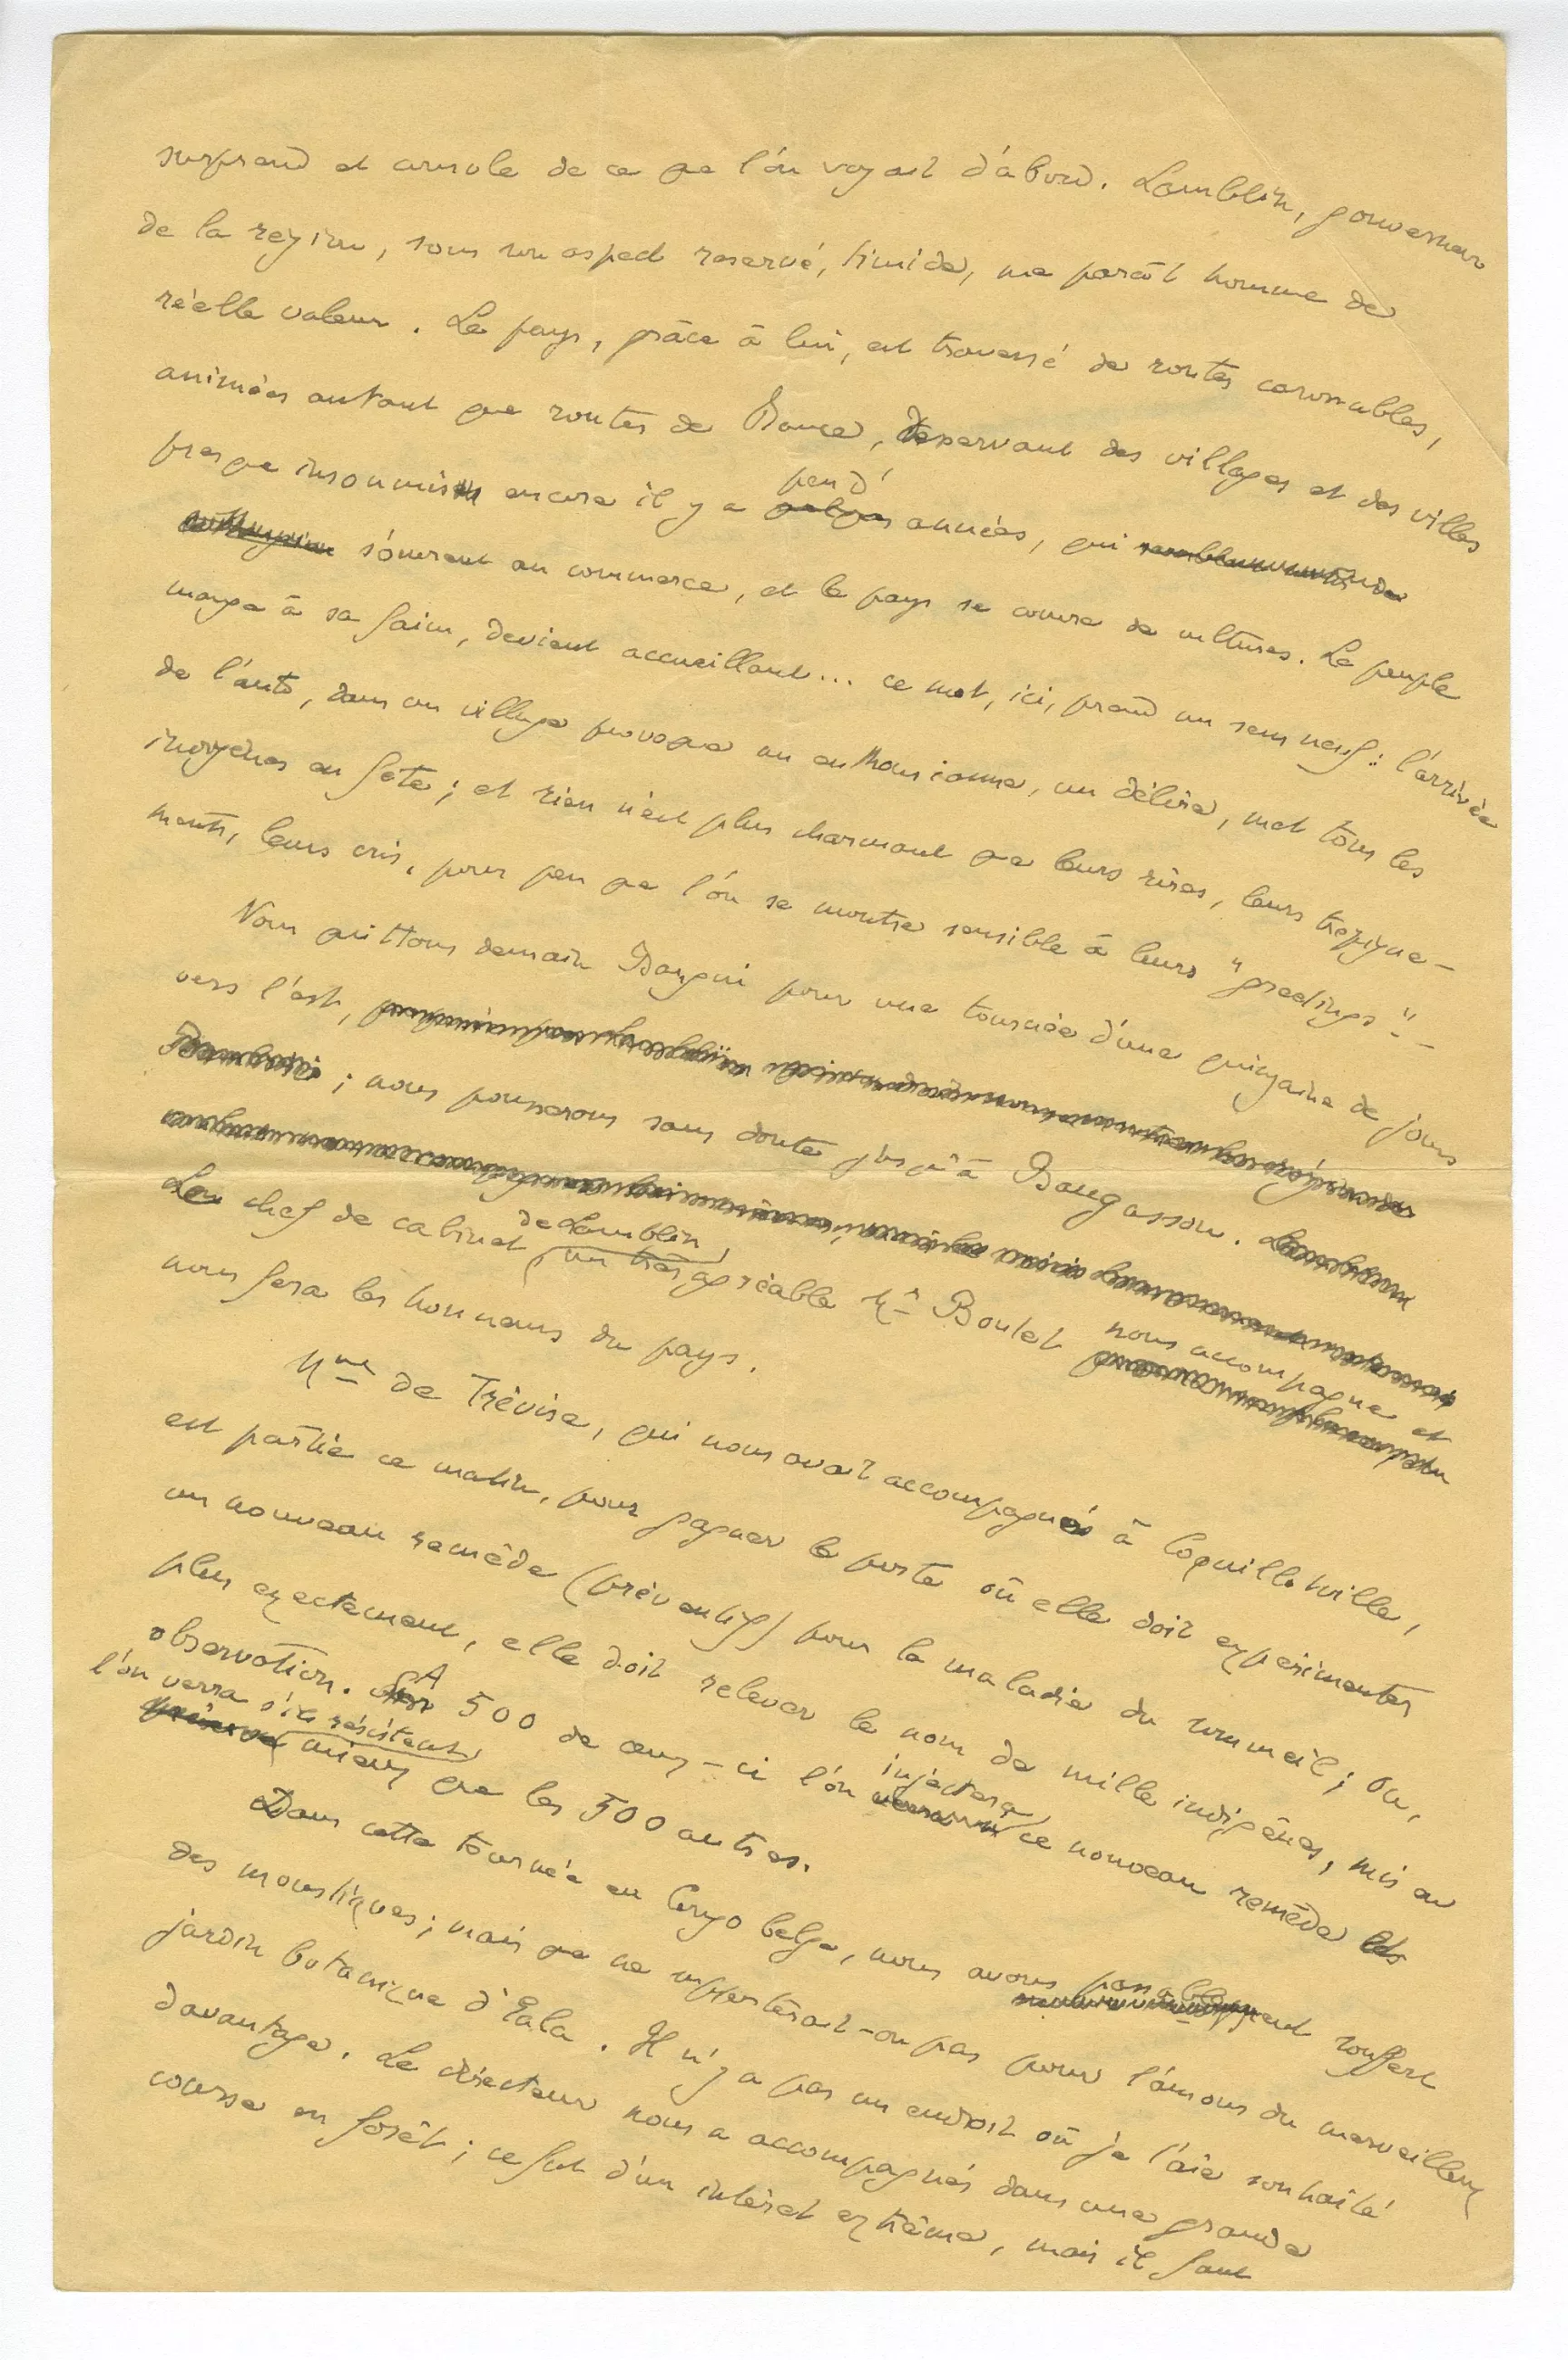 surprend et console de ce que l'on voyait d'abord. Lamblin, gouverneur
de la region, sous son aspect reservé, timide, me paraît homme de
réelle valeur. Le pays, grâce à lui, est traversé de routes carrossables,
animées autant que routes de Beauce, desservant des villages et des villes
presque insoumis encore il y a peu d' années, qui
s'ouvrent au commerce, et le pays se couvre de cultures. Le peuple
mange à sa faim, devient accueillant... ce mot, ici, prend un sens neuf: l'arrivée
de l'auto, dans un village provoque un enthousiasme, un délire, met tous les
indigènes en fête; et rien n'est plus charmant que leurs rires, leurs trepigne-
ments, leurs cris, pour peu que l'on se montre sensible à leurs "greetings"_
Nous quittons demain Bangui pour une tournée d'une quinzaine de jours
vers l'est,
; nous pousserons sans doute jusqu'à Bangassou.
Le chef de cabinet de Lamblin, un très agréable Mr Boulet nous accompagne et
nous fera les honneurs du pays.
Mme de Trévise, qui nous avait accompagnés à Coquillatville,
est partie ce matin, pour gagner le poste où elle doit expérimenter
un nouveau remède (préventif) pour la maladie du sommeil; ou,
plus exactement, elle doit relever le nom de mille indigènes, mis en
observation. A 500 de ceux-ci l'on injectera ce nouveau remède
l'on verra s'ils résistent mieux que les 500 autres.
Dans cette tournée au Congo belge, nous avons passablement souffert
des moustiques; mais que ne supporterait-on pas pour l'amour du merveilleux
jardin botanique d'Eala. Il n'y a pas un endroit où je l'aie souhaité
davantage. Le directeur nous a accompagnés dans une grande
course en forêt; ce fut d'un intérêt extrême, mais il faut